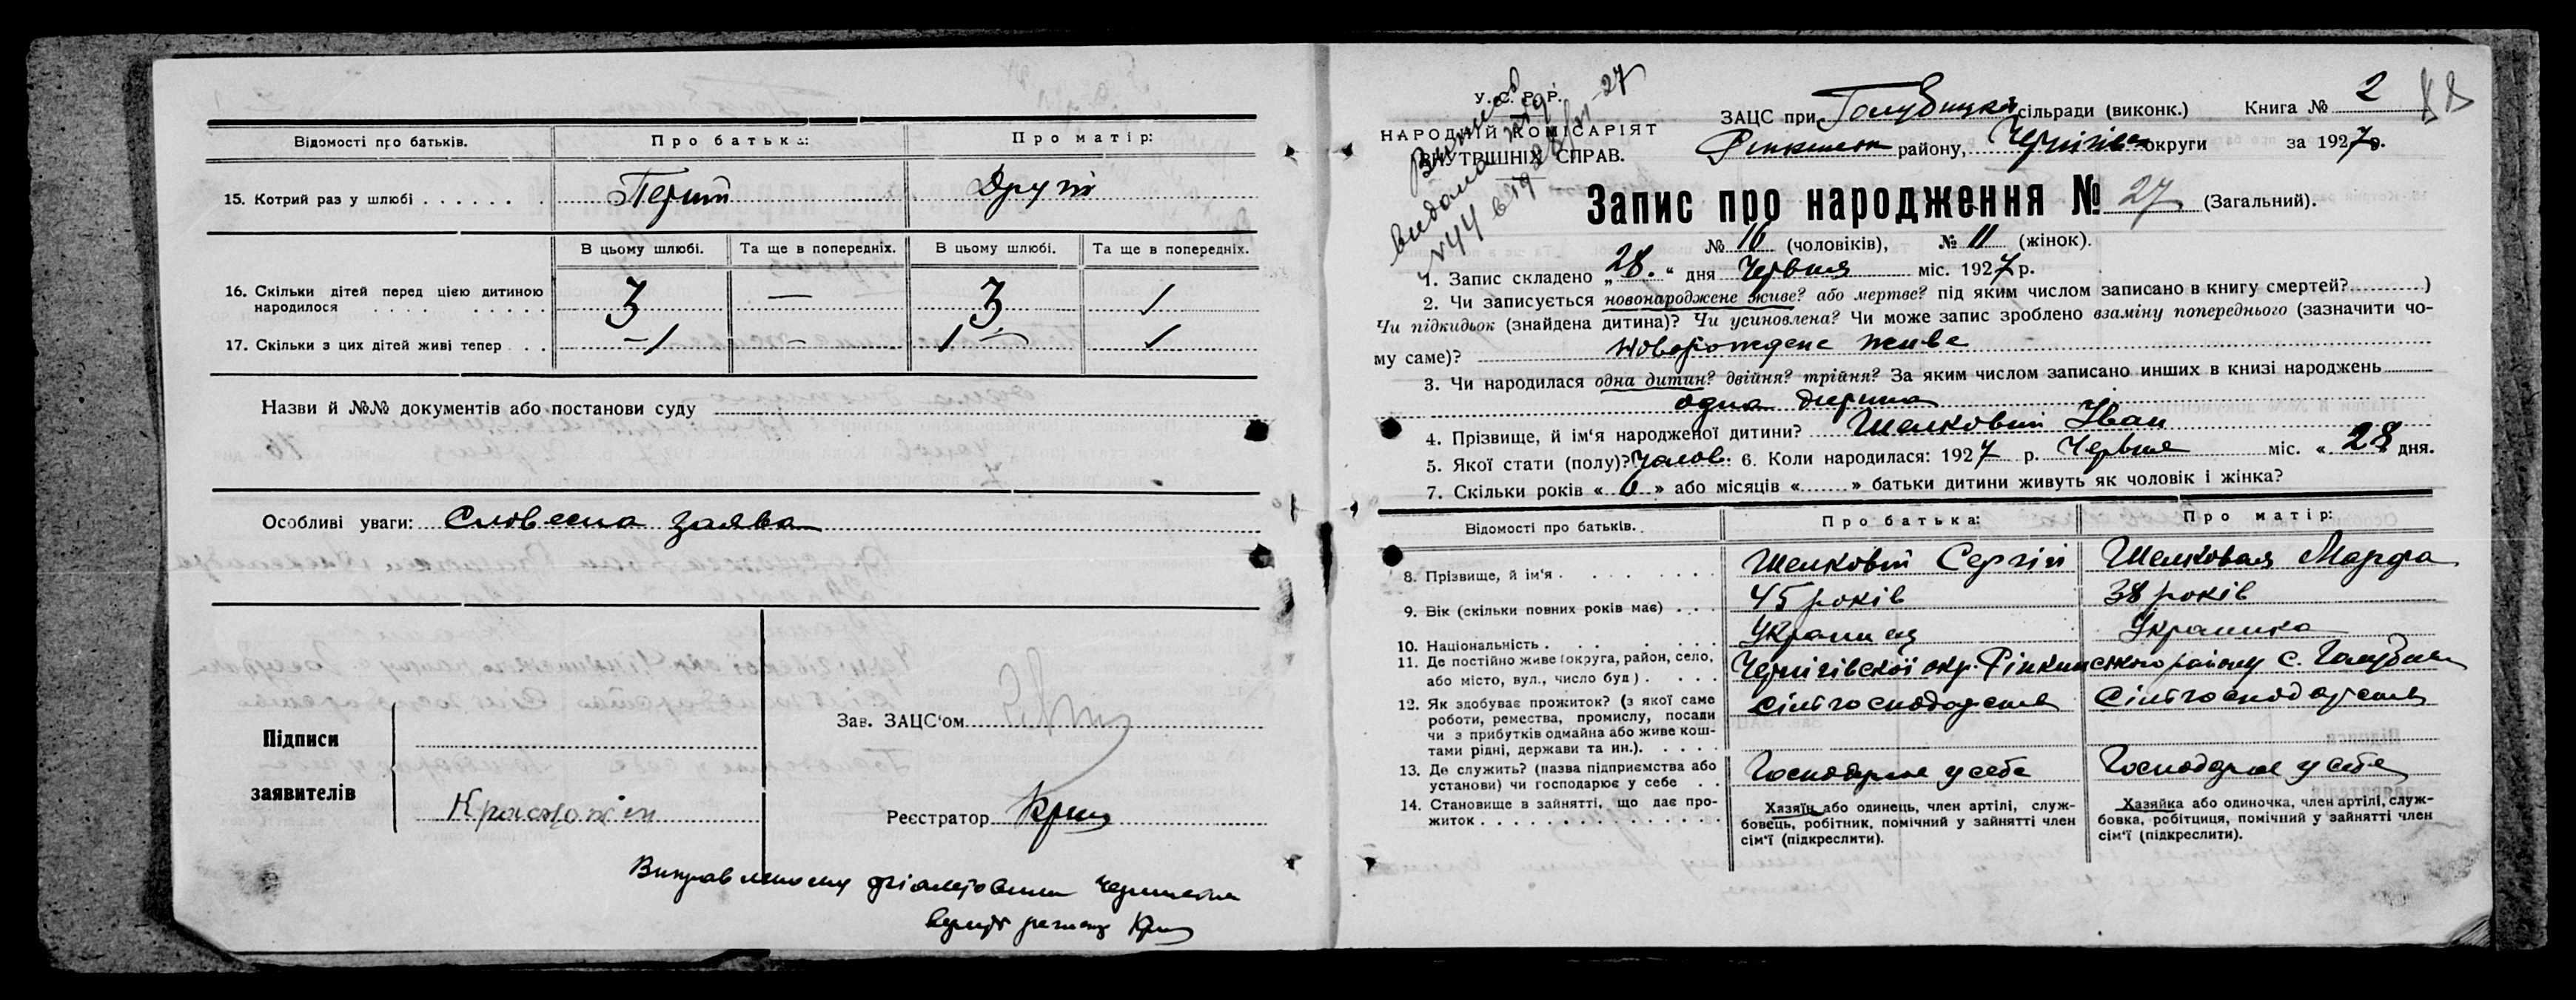 Відомості про батьків. Про батька: Про матір:
15. Котрий раз у шлюбі Перший Другий
В цьому шлюбі. Та ще в попередніх. В цьому шлюбі. Та ще в попередніх.
16. Скільки дітей перед цією дитиною
народилося 3 — 3 1
17. Скільки з цих дітей живі тепер
Назви й №№ документів або постанови суду
Особливі уваги: Словесна заява
Підписи
заявителів
Зав. ЗАЦС'ом
Реєстратор
У. С. Р. Р.
НАРОДНІЙ КОМІСАРІЯТ
ВНУТРІШНІХ СПРАВ.
видала
ЗАЦС при сільради (виконк.) Книга № 2
району, округи за 1927 р.
Запис про народження № 27 (Загальний).
№ 16 (чоловіків), № 11 (жінок).
1. Запис складено „28.“ дня Червня міс. 1927 р.
2. Чи записується новонароджене живе? або мертве? під яким числом записано в книгу смертей? )
Чи підкидьок (знайдена дитина)? Чи усиновлена? Чи може запис зроблено взаміну попереднього (зазначити чо-
му саме)? живе
3. Чи народилася одна дитин? двійня? трійня? За яким числом записано инших в книзі народжень
одна дитина
4. Прізвище, й ім'я народженої дитини? Шелковий Іван
5. Якої стати (полу)? Чолов. 6. Коли народилася: 1927 р. Червня міс. « 28 » дня.
7. Скільки років « 6 » або місяців « » батьки дитини живуть як чоловік і жінка?
Відомості про батьків. Про батька: Про матір:
8. Прізвище, й ім'я Шелковий Сергій Шелковая Марфа
9. Вік (скільки повних років має) 45 років 38 років
10. Національність Українец Українка
11. Де постійно живе (округа, район, село,
або місто, вул., число буд). Чернігівскої окр. Ріпкинського району с.
12. Як здобуває прожиток? (з якої саме
роботи, ремества, промислу, посади
чи з прибутків одмайна або живе кош-
тами рідні, держави та ин.).
13. Де служить? (назва підприємства або
установи) чи господарює у себе Господарює у себе Господарює у себе
14. Становище в зайнятті, що дає про-
житок
Хазяїн або одинець, член артілі, служ-
бовець, робітник, помічний у зайнятті член
сім'ї (підкреслити).
Хазяйка або одиночка, член артілі, служ-
бовка, робітциця, помічний у зайнятті член
сім'ї (підкреслити).